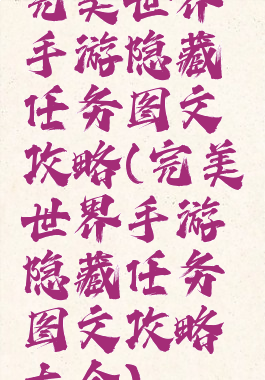 完美世界
手游隐藏
任务图文
攻略(完美
世界手游
隐藏任务
图文攻略
大全)